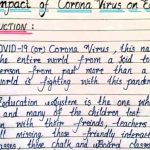 Impact of Corona Virus on E
UCTION :
OVID-19 (or) Corona Virus, this na
he entire world from a kid to
erson from past more than a
world is fighting with this pandem
Education system is the one wh
and many of the children test
on with their freinds, teachers.
ll missing those friendly interac
asses, those chalk and board classes